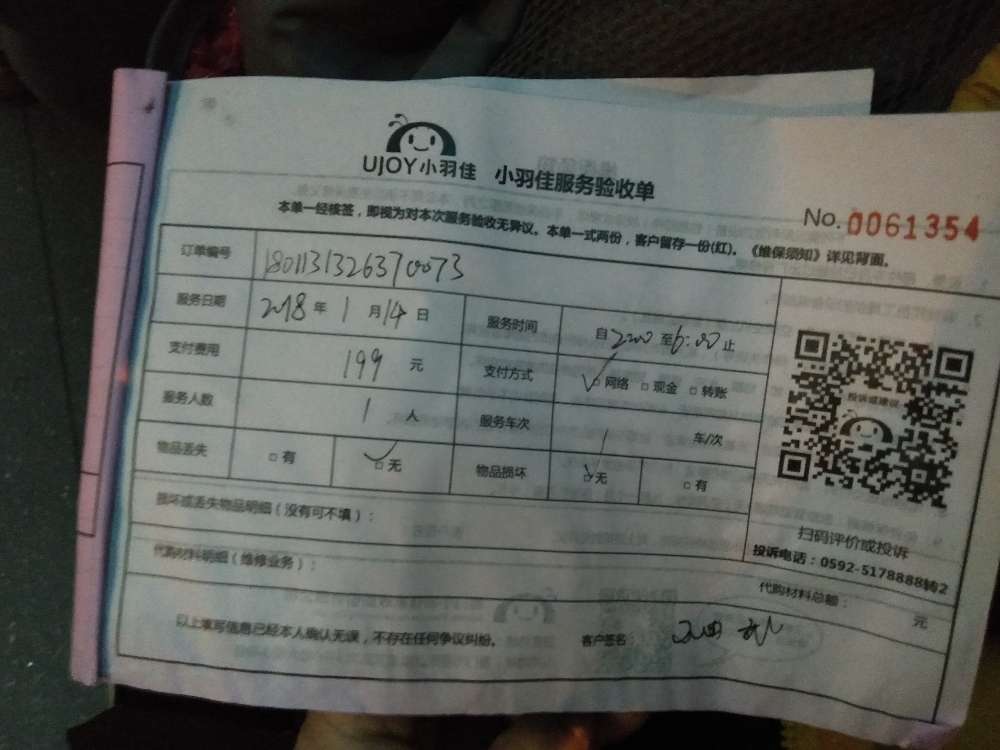 UJOY小羽佳 小羽佳服务验收单
No. 0061354
本单一经核签，即视为对本次服务验收无异议。本单一式两份，客户留存一份(红)。《维保须知》详见背面。
订单编号 180113132637 0073
服务日期 2018 年 1 月 14 日 服务时间 自 2:00 至 6:00 止
支付费用 199 元 支付方式 □ 网络 □ 现金 □ 转账
服务人数 1 人 服务车次 / 车/次
物品丢失 □ 有 □ 无 物品损坏 □ 无 □ 有
投诉或建议
扫码评价或投诉
投诉电话：0592-5178888转2
损坏或丢失物品明细（没有可不填）：
代购材料明细（维修业务）：
代购材料总额： 元
以上填写信息已经本人确认无误，不存在任何争议纠纷。 客户签名：